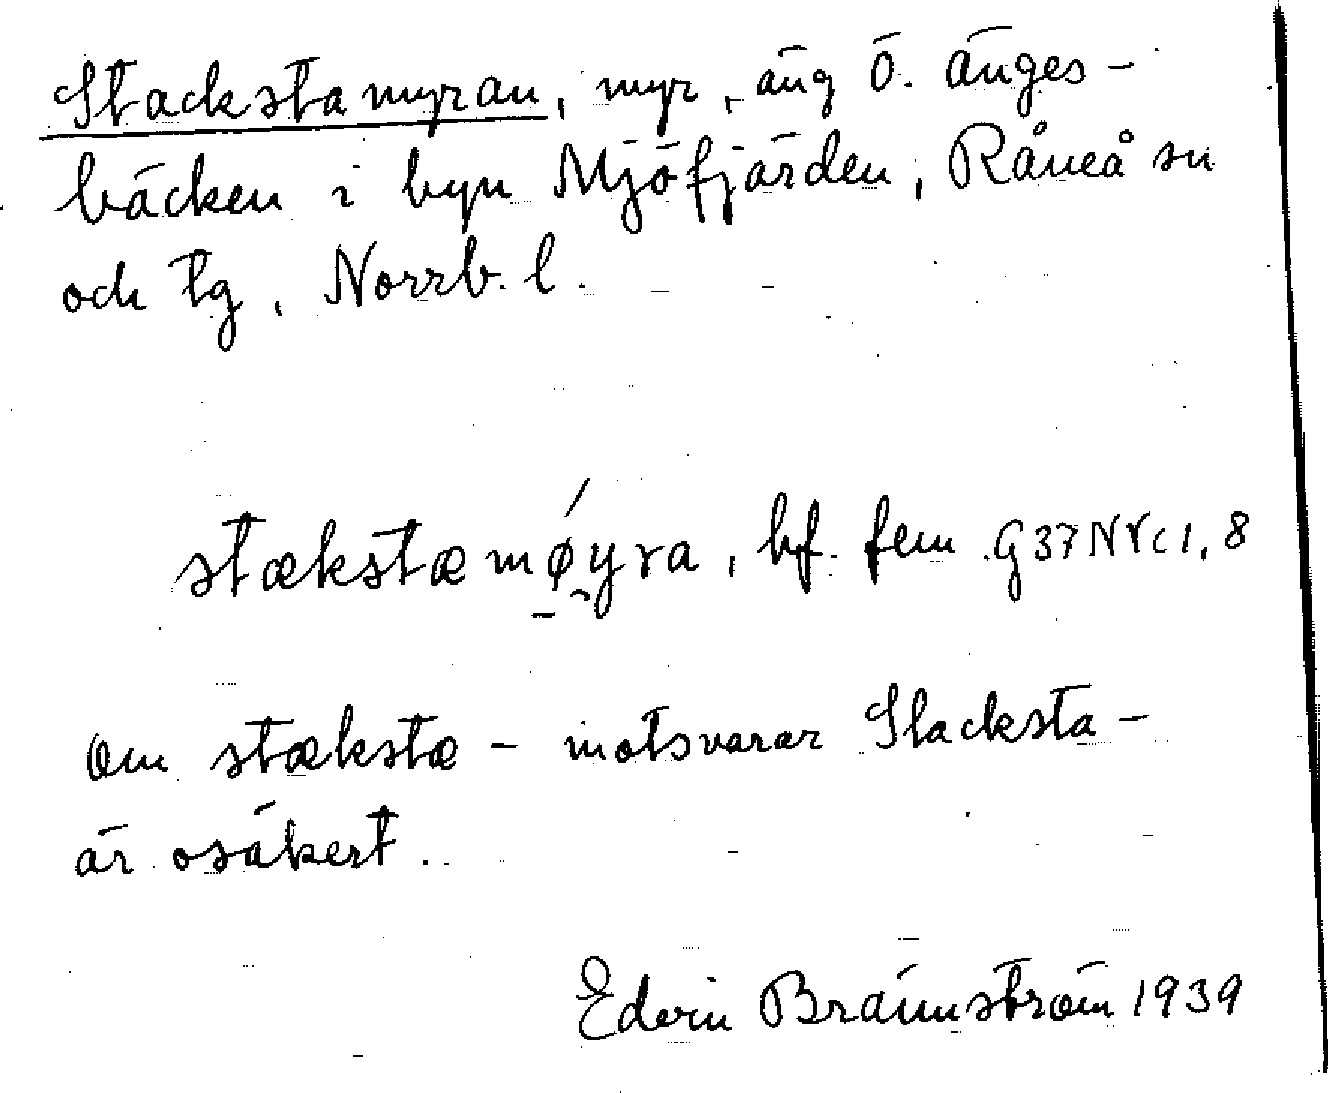 Stackstamyran, myr, äng Ö. änges-
bäcken i byn Mjöfjärden, Råneå sn
och tg, Norrb. l.
stækstæmøyra, bf. fem. G37NVc1,8
Om stækstæ- motsvarar Stacksta-
är osäkert.
Edvin Brännström 1939